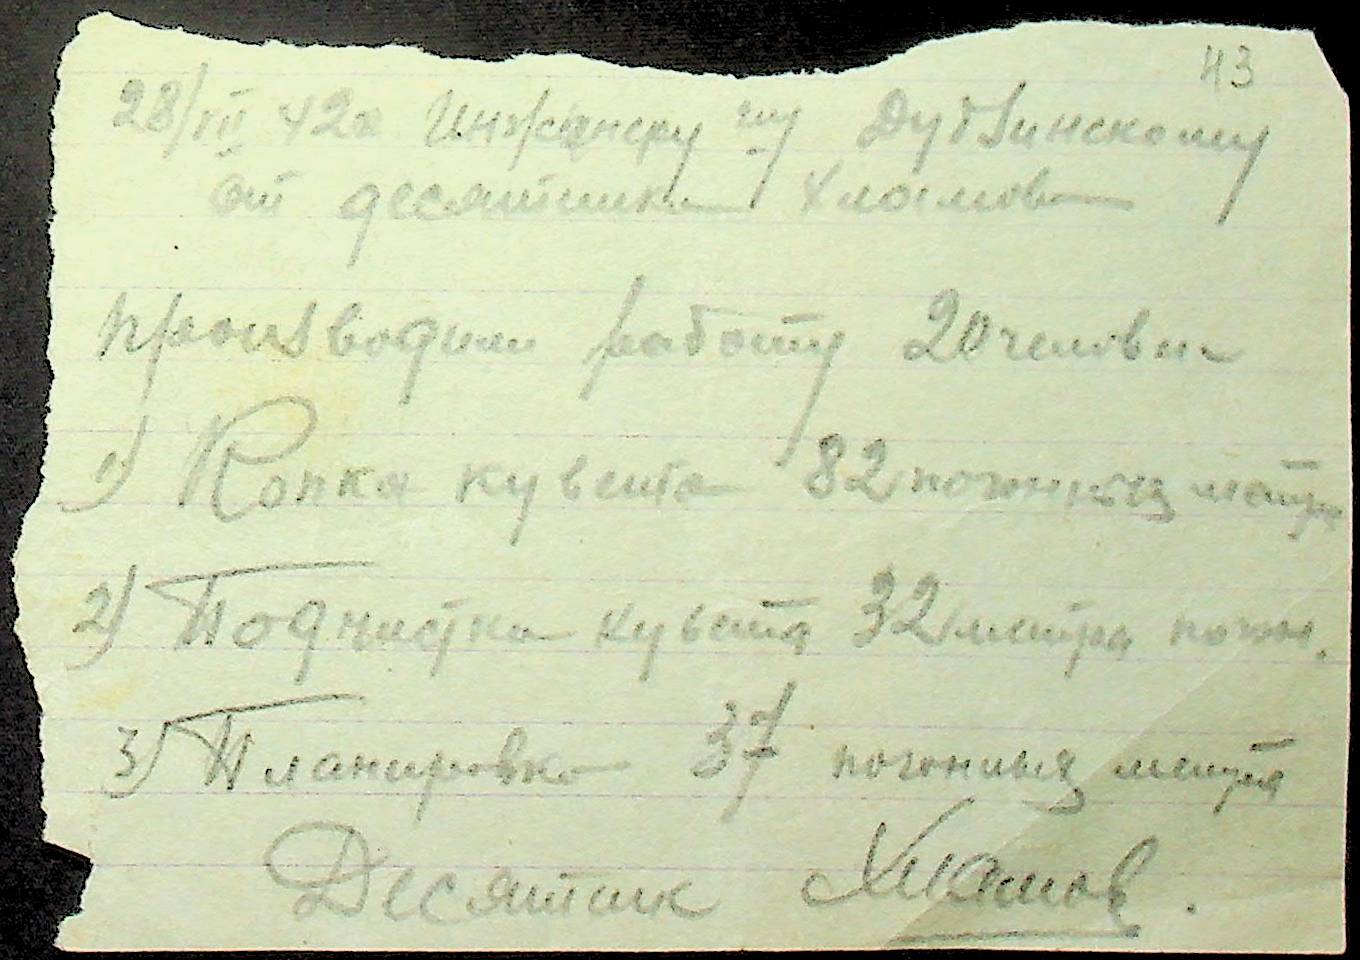 43
28/III 42г Инженеру ту Дубвинскому
от десятника Хламова
Производили работу 20 человек
1) Копка кувета 82 погонных метра
2) Подчистка кувета 32 метра погон.
3) Планировка 37 погонных метра
Десятник Хламов.